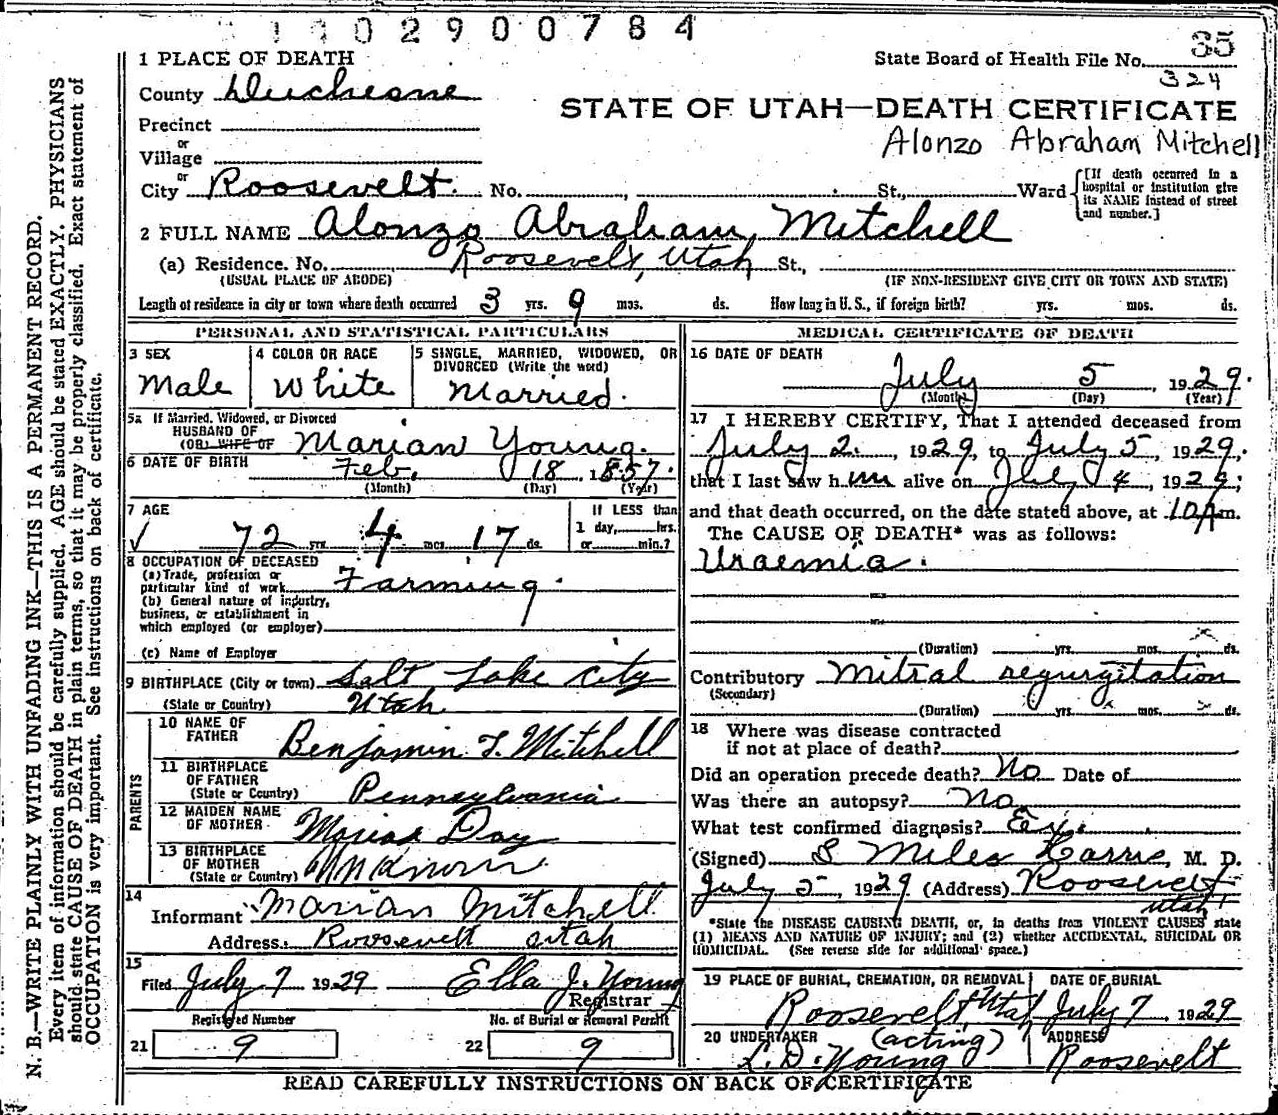 1 1 0 2 9 0 0 7 8 4
35
1 PLACE OF DEATH
State Board of Health File No.
324
County Duchesne
STATE OF UTAH—DEATH CERTIFICATE
Precinct
Alonzo Abraham Mitchell
or
Village
or
City Roosevelt. No. , St., Ward
[If death occurred in a hospital or institution give its NAME instead of street and number.]
2 FULL NAME Alonzo Abraham Mitchell
(a) Residence. No. Roosevelt, Utah St.,
(USUAL PLACE OF ABODE) (IF NON-RESIDENT GIVE CITY OR TOWN AND STATE)
Length of residence in city or town where death occurred 3 yrs. 9 mos. ds. How long in U. S., if foreign birth? yrs. mos. ds.
PERSONAL AND STATISTICAL PARTICULARS
3 SEX
Male
4 COLOR OR RACE
White
5 SINGLE, MARRIED, WIDOWED, OR
DIVORCED (Write the word)
Married.
5a If Married, Widowed, or Divorced
HUSBAND OF
(OR) WIFE OF Marian Young.
6 DATE OF BIRTH Feb. 18, 1857.
(Month) (Day) (Year)
7 AGE
72 yrs. 4 mos. 17 ds.
If LESS than
1 day, hrs.
or min.?
8 OCCUPATION OF DECEASED
(a) Trade, profession or
particular kind of work Farming.
(b) General nature of industry,
business, or establishment in
which employed (or employer)
(c) Name of Employer
9 BIRTHPLACE (City or town) Salt Lake City
(State or Country) Utah
PARENTS
10 NAME OF
FATHER Benjamin T. Mitchell
11 BIRTHPLACE
OF FATHER
(State or Country) Pennsylvania
12 MAIDEN NAME
OF MOTHER Day
13 BIRTHPLACE
OF MOTHER
(State or Country) Unknown
14
Informant Marian Mitchell
Address: Roosevelt Utah
15
Filed July 7 1929 Ella J. Young
Registrar
Registered Number
21 9
No. of Burial or Removal Permit
22 9
MEDICAL CERTIFICATE OF DEATH
16 DATE OF DEATH
July 5, 1929.
(Month) (Day) (Year)
17 I HEREBY CERTIFY, That I attended deceased from
July 2, 1929, to July 5, 1929,
that I last saw him alive on July 4, 1929;
and that death occurred, on the date stated above, at 10 A m.
The CAUSE OF DEATH* was as follows:
Uraemia.
(Duration) yrs. mos. ds.
Contributory Mitral regurgitation
(Secondary)
(Duration) yrs. mos. ds.
18 Where was disease contracted
if not at place of death?
Did an operation precede death? No Date of
Was there an autopsy? No
What test confirmed diagnosis?
(Signed) S Miles Harris, M. D.
July 5, 1929 (Address) Roosevelt
Utah
*State the DISEASE CAUSING DEATH, or, in deaths from VIOLENT CAUSES state
(1) MEANS AND NATURE OF INJURY; and (2) whether ACCIDENTAL, SUICIDAL OR
HOMICIDAL. (See reverse side for additional space.)
19 PLACE OF BURIAL, CREMATION, OR REMOVAL
Roosevelt, Utah
DATE OF BURIAL
July 7, 1929
20 UNDERTAKER (acting)
L. D. Young
ADDRESS
Roosevelt
READ CAREFULLY INSTRUCTIONS ON BACK OF CERTIFICATE
N. B.—WRITE PLAINLY WITH UNFADING INK—THIS IS A PERMANENT RECORD.
Every item of information should be carefully supplied. AGE should be stated EXACTLY. PHYSICIANS
should state CAUSE OF DEATH in plain terms, so that it may be properly classified. Exact statement of
OCCUPATION is very important. See instructions on back of certificate.